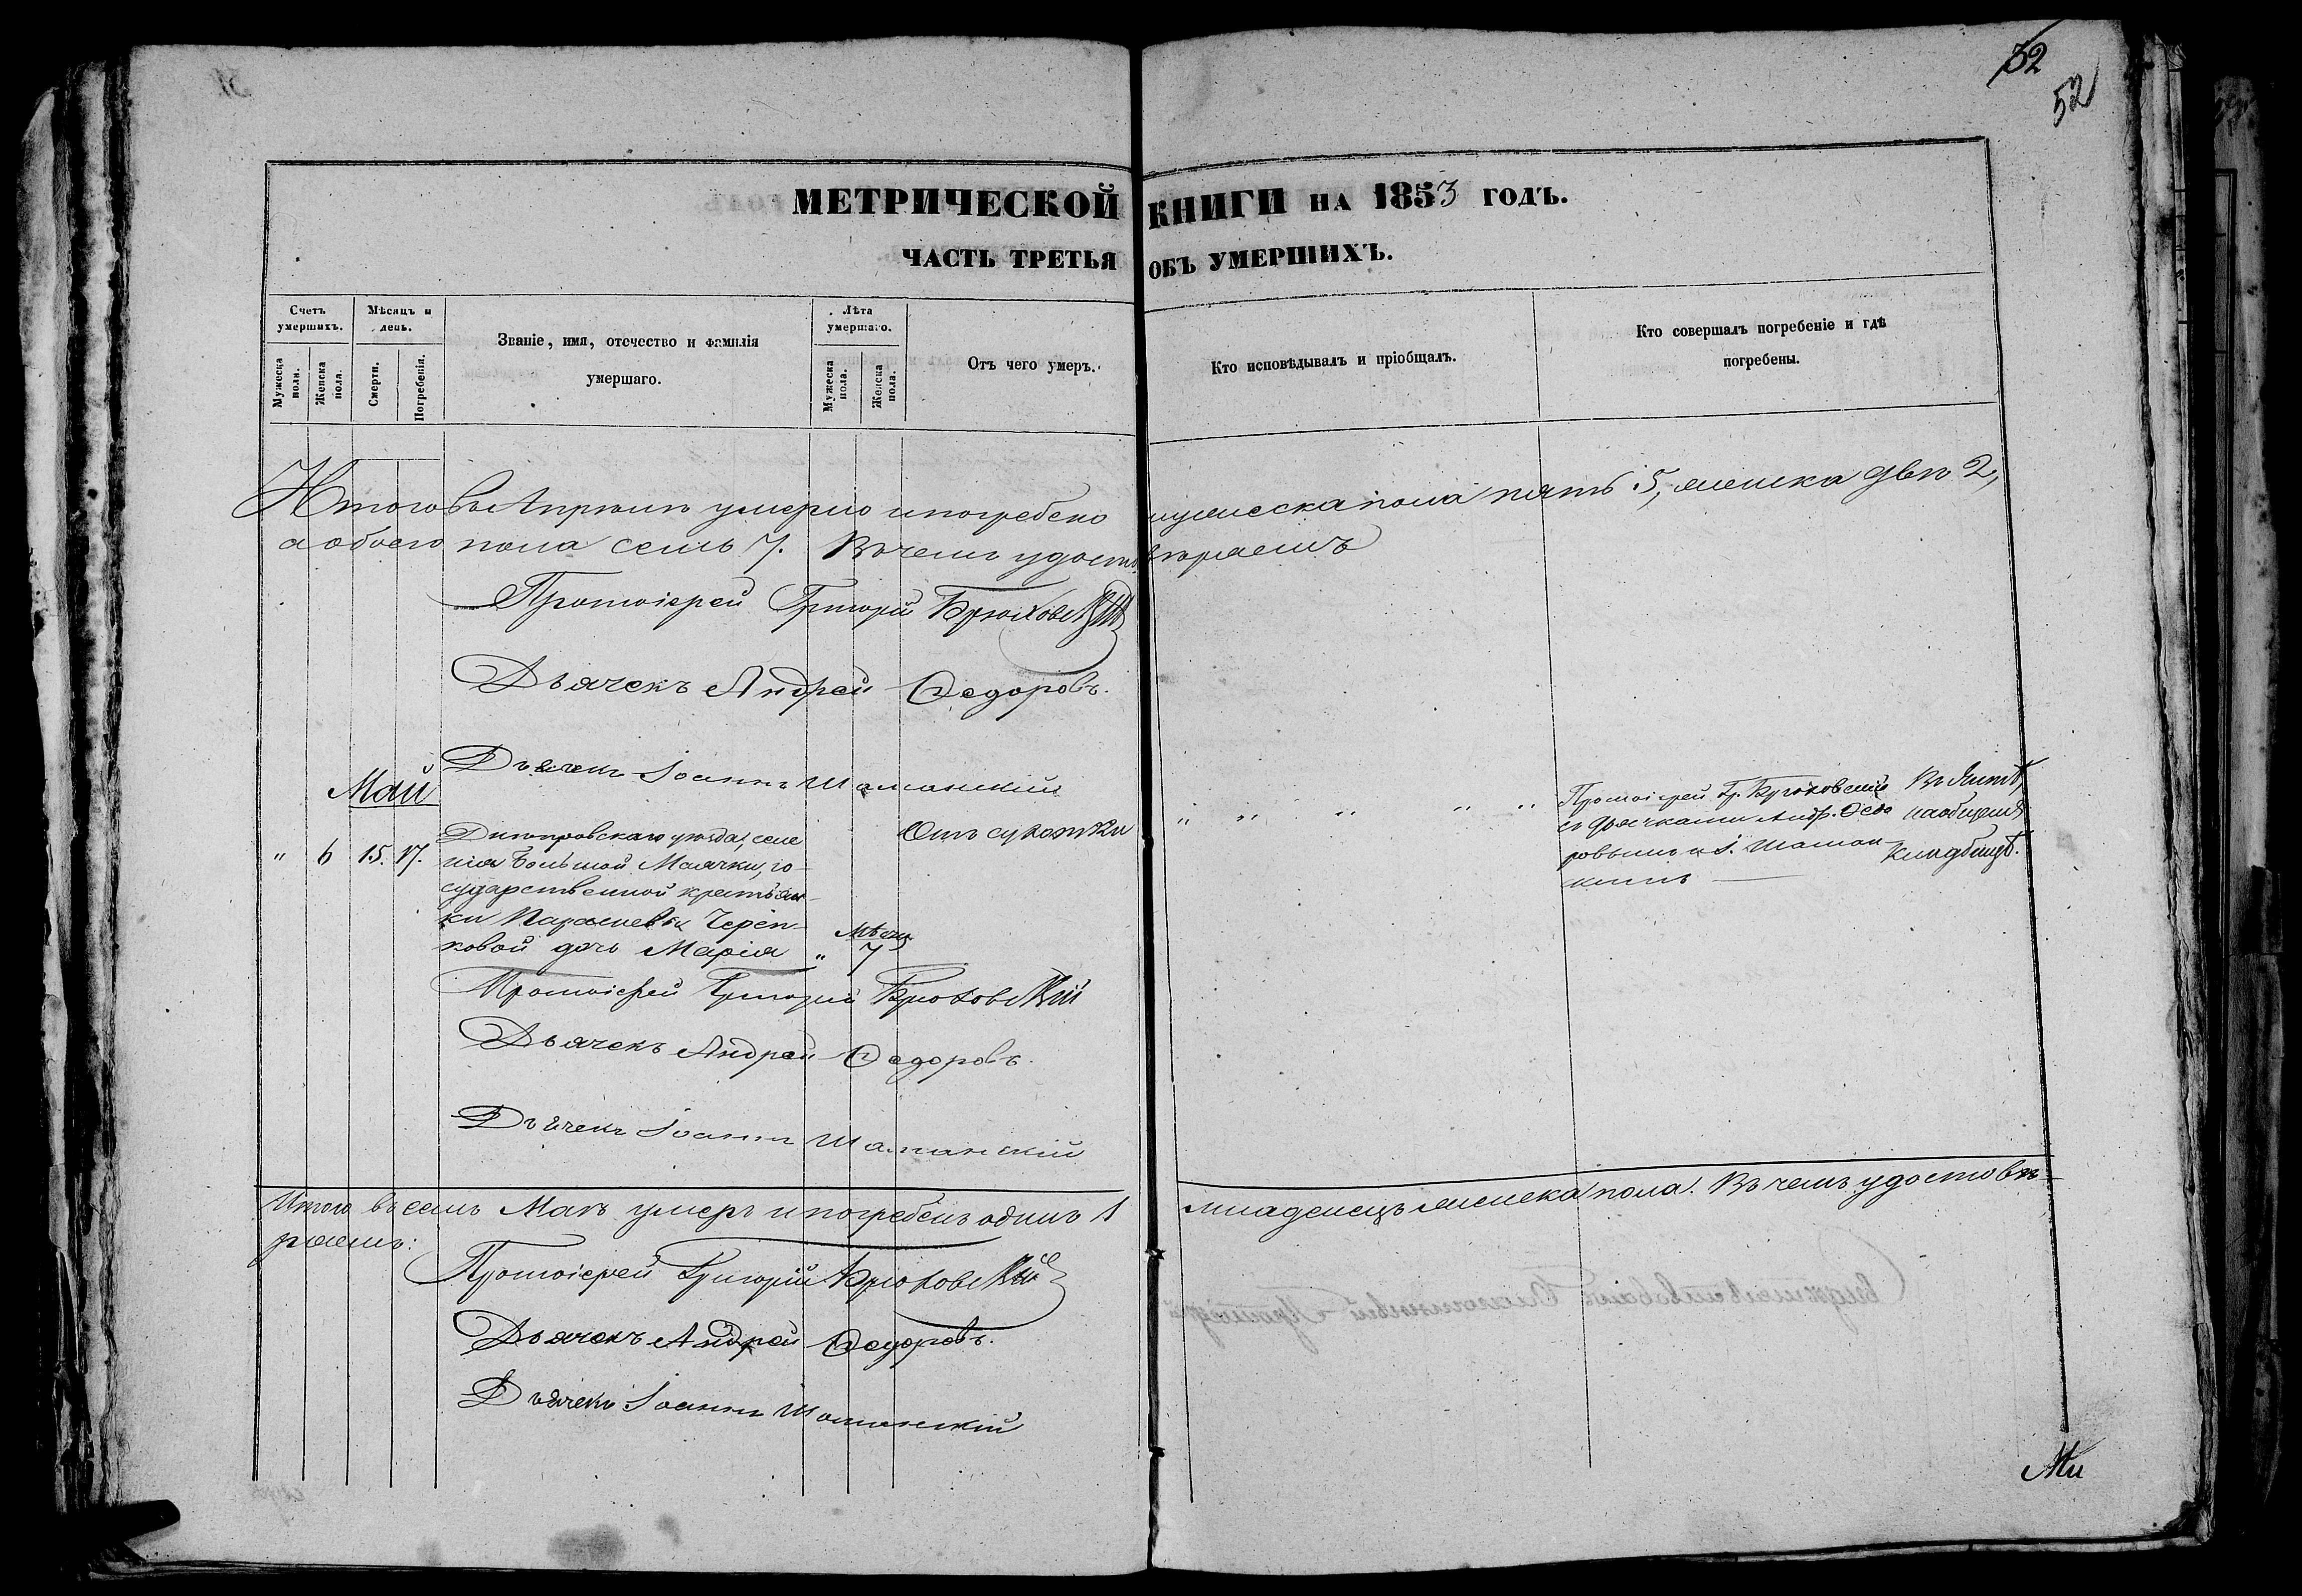 32
52
МЕТРИЧЕСКОЙ КНИГИ НА 1853 ГОДЪ.
ЧАСТЬ ТРЕТЬЯ ОБЪ УМЕРШИХЪ.
Счетъ умершихъ.
Мужеска поли.
Женска пола.
Мѣсяцъ и день.
Смерти.
Погребенія.
Званіе, имя, отечество и фамилія
умершаго.
Лѣта умершаго.
Мужеска пола.
Женска пола.
Отъ чего умеръ.
Кто исповѣдывалъ и пріобщалъ.
Кто совершалъ погребеніе и гдѣ
погребены.
Итого въ Апрѣлѣ умерло и погребено мужеска пола пять 5, женска двѣ 2,
а обоего пола семь 7. Въ чемъ удостовѣряемъ
Протоіерей Григорій Брюховскій
Дьячекъ Андрей Ѳедоровъ.
Дьячекъ Іоаннъ Шаманскій
Май
" 6 15. 17.
Днѣпровскаго уѣзда, селе
нія Большой Маячки, го-
сударственной крестьян-
ки Параскевы Череп-
ковой дочь Марія
" Мѣсяц. 7
Отъ сухотки
" " " " "
Протоіерей Гр. Брюховскій
съ дьячками Андр. Ѳедо
ровымъ и І. Шаман-
скимъ
Въ Ялтѣ,
на общемъ
кладбищѣ.
Протоіерей Григорій Брюховскій
Дьячекъ Андрей Ѳедоровъ.
Дьячекъ Іоаннъ Шаманскій
Итого въ семъ Маѣ умеръ и погребенъ одинъ 1 младенецъ женска пола. Въ чемъ удостовѣ-
ряемъ:
Протоіерей Григорій Брюховскій
Дьячекъ Андрей Ѳедоровъ.
Дьячекъ Іоаннъ Шаманскій